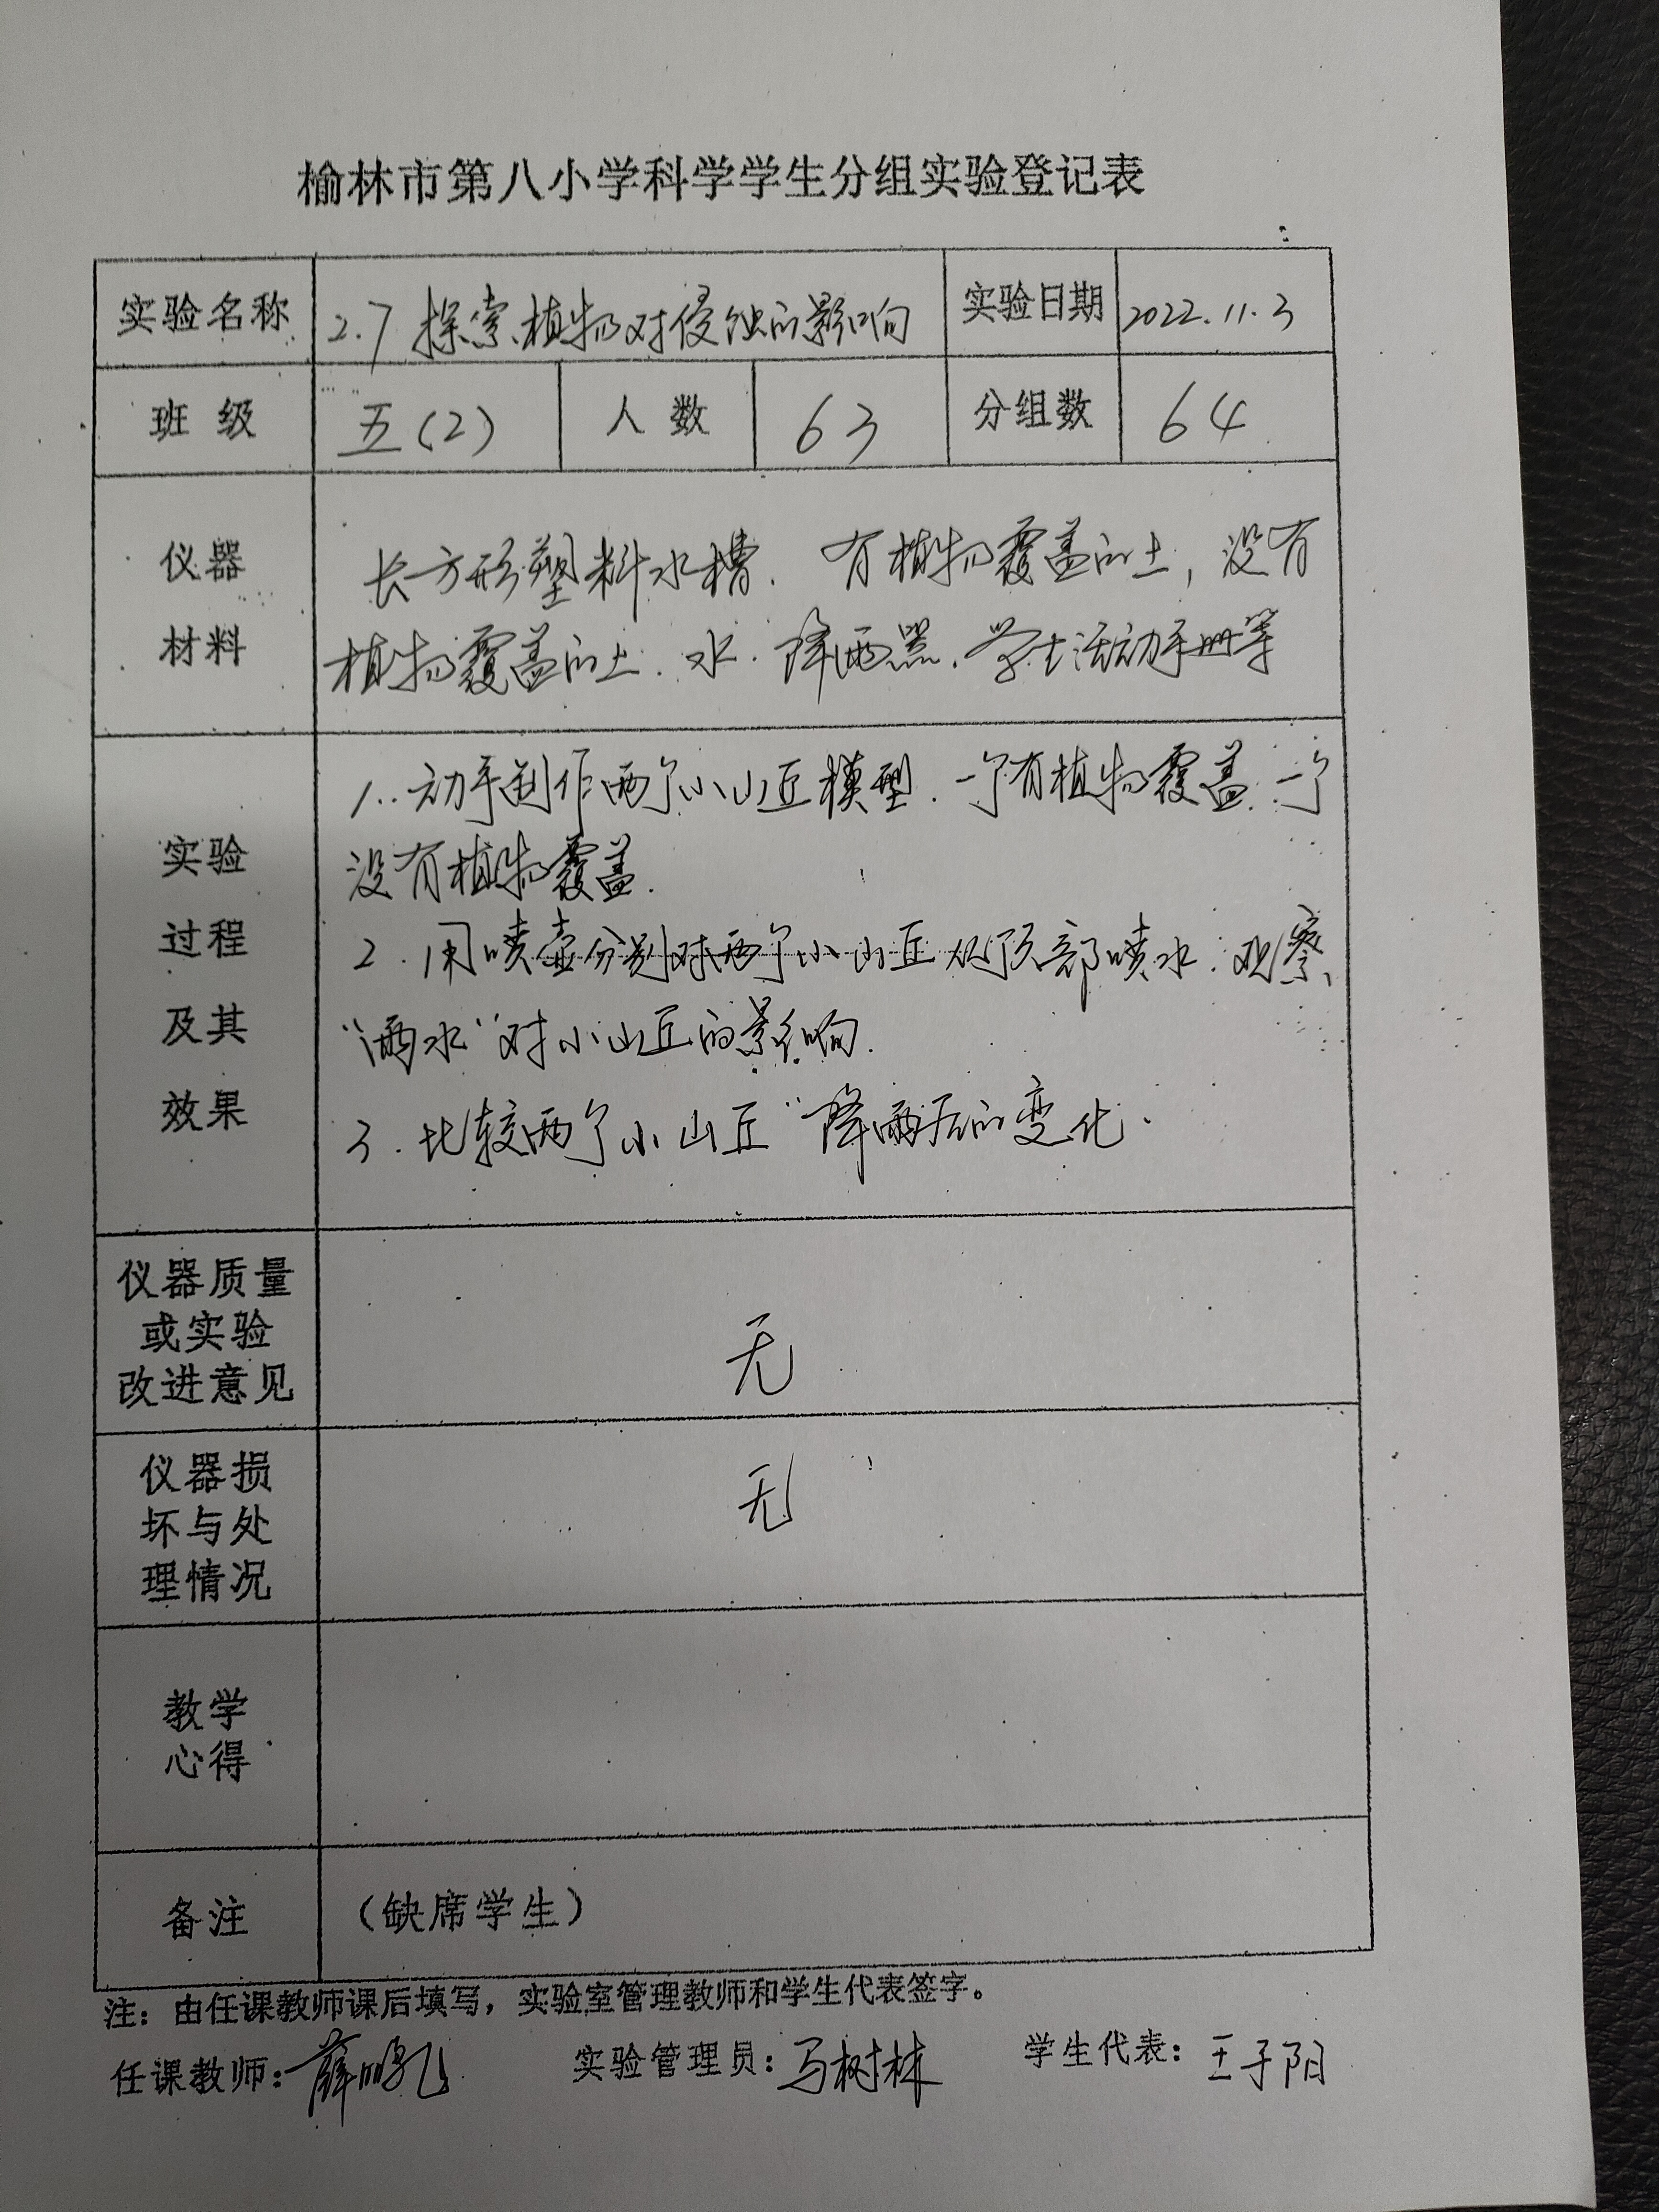 榆林市第八小学科学学生分组实验登记表
实验名称 2.7 探索植物对侵蚀的影响 实验日期 2022.11.3
班 级 五(2) 人 数 63 分组数 64
仪器
材料
长方形塑料水槽. 有植物覆盖的土, 没有
植物覆盖的土. 水. 降雨器. 学生活动手册等
实验
过程
及其
效果
1. 动手制作两个小山丘模型. 一个有植物覆盖. 一个
没有植物覆盖.
2. 用喷壶分别对两个小山丘从顶部喷水. 观察
“雨水”对小山丘的影响.
3. 比较两个小山丘“降雨后的变化.
仪器质量
或实验
改进意见
无
仪器损
坏与处
理情况
无
教学
心得
备注 (缺席学生)
注: 由任课教师课后填写, 实验室管理教师和学生代表签字。
任课教师: 薛鹏飞 实验管理员: 马树林 学生代表: 王子阳